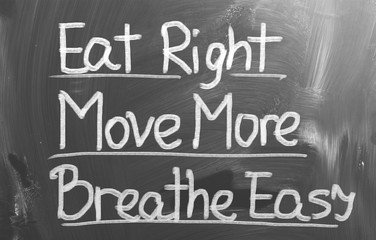 Eat Right
Move More
Breathe Easy